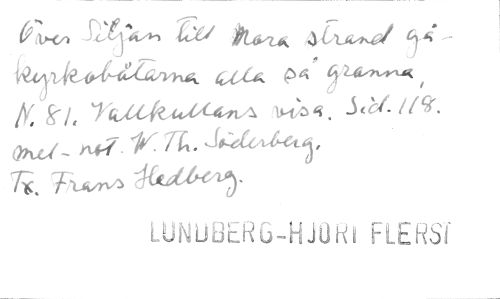 Över Siljan till Mora strand gå-
kyrkobåtarna alla så granna,
N. 81. Vallkullans visa. Sid. 118.
mel-not. W. Th. Söderberg.
Tx. Frans Hedberg.
LUNDBERG-HJORT FLERST